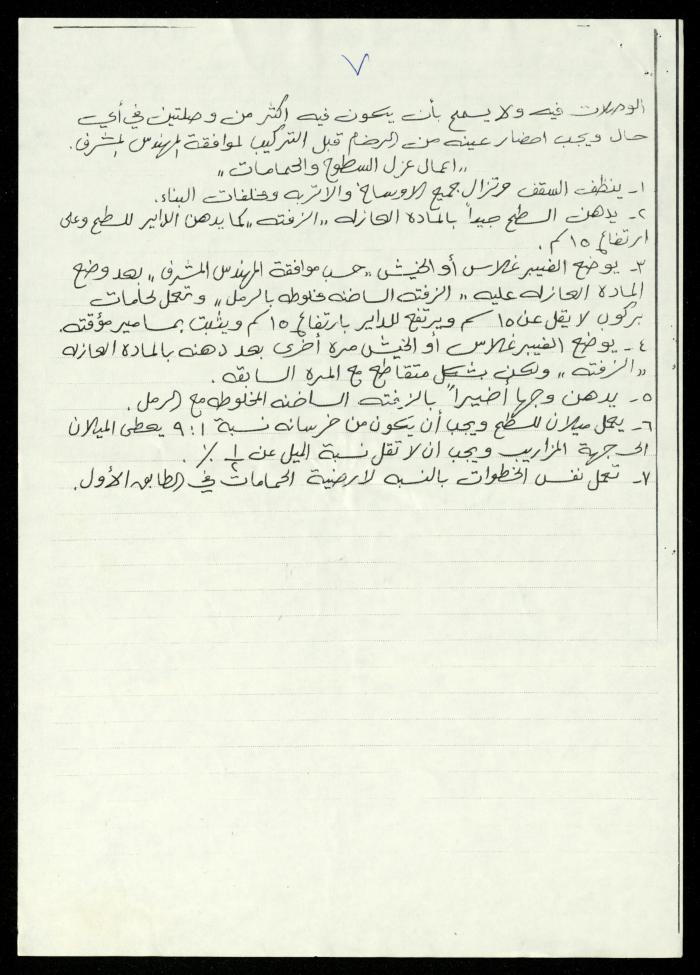 ٧
الوصلات فيه ولا يسمح بأن يكون فيه اكثر من وصلتين في أي
حال ويجب احضار عينه من الرخام قبل التركيب لموافقة المهندس المشرف.
"اعمال عزل السطوح والحمامات"
١- ينظف السقف وتزال جميع الاوساخ والاتربه ومخلفات البناء.
٢- يدهن السطح جيداً بالماده العازله "الزفته" كما يدهن الداير للسطح وعلى
ارتفاع ١٥ سم.
٣- يوضع الفيبرغلاس أو الخيش "حسب موافقة المهندس المشرف" بعد وضع
الماده العازله عليه "الزفته الساخنه مخلوطه بالرمل" وتعمل لحامات
بركوب لا يقل عن ١٥ سم ويرتفع للداير بارتفاع ١٥ سم ويثبت بمسامير مؤقته.
٤- يوضع الفيبرغلاس او الخيش مره أخرى بعد دهنه بالماده العازله
"الزفته" ولكن بشكل متقاطع مع المره السابقه.
٥- يدهن وجها أخيراً بالزفته الساخنه المخلوطه مع الرمل.
٦- يعمل ميلان للسطح ويجب أن يكون من خرسانه نسبة ٩:١ يعطى الميلان
الى جهة المزاريب ويجب ان لا تقل نسبة الميل عن ١/٢ ٪.
٧- تعمل نفس الخطوات بالنسبه لارضية الحمامات في الطابق الأول.